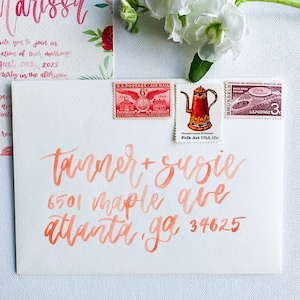 Marissa
you to join in
of their marriage
2022
in the afternoon
U.S. POSTAGE AIR MAIL
6¢
Folk Art USA 15c
U.S. POSTAGE
3¢
tanner + susie
6501 maple ave
atlanta, ga 34625